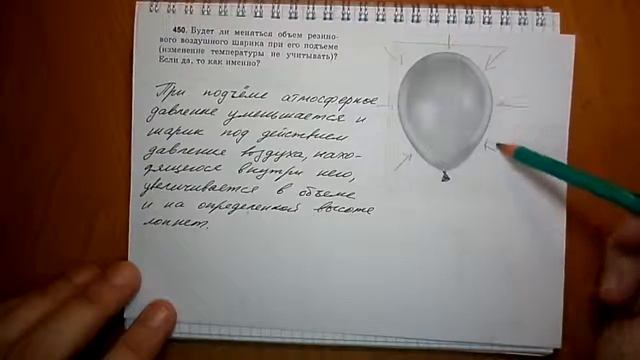 450. Будет ли меняться объем резино-
вого воздушного шарика при его подъеме
(изменение температуры не учитывать)?
Если да, то как именно?
При подъёме атмосферное
давление уменьшается и
шарик под действием
давления воздуха, нахо-
дящегося внутри него,
увеличивается в объеме
и на определенной высоте
лопнет.